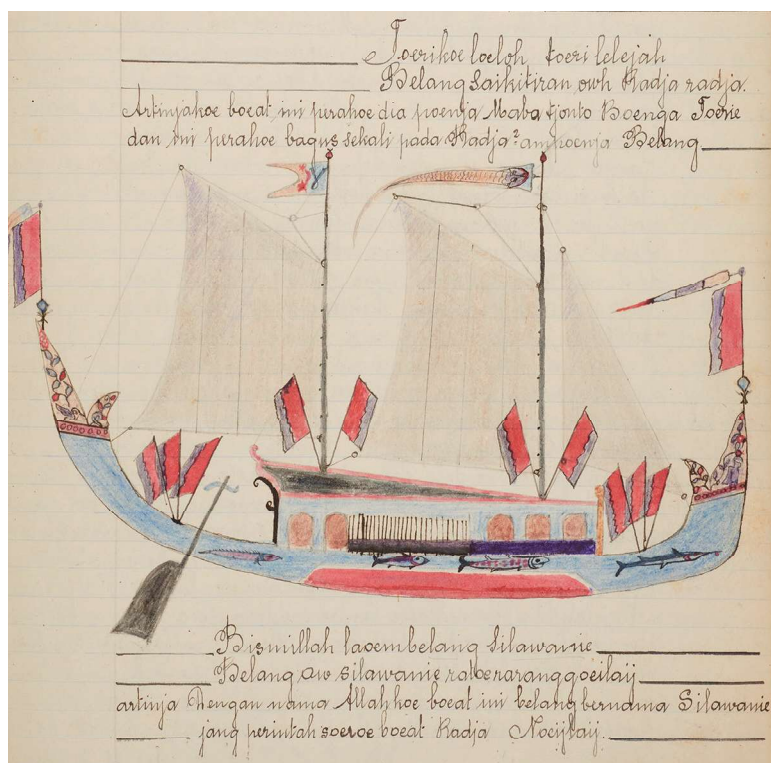 Toerikoe loeloh, toeri lelejah
Belang Saikitiran owh Radja radja.
Artinjakoe boeat ini perahoe dia poenja Maba tjonto Boenga Toerie
dan ini perahoe bagus sekali pada Radja² ampoenja Belang
Bismillah laoembelang Silawanie
Belang aw silawanie
artinja Dengan nama Allah koe boeat ini belang bernama Silawanie
jang perintah soeroe boeat Radja